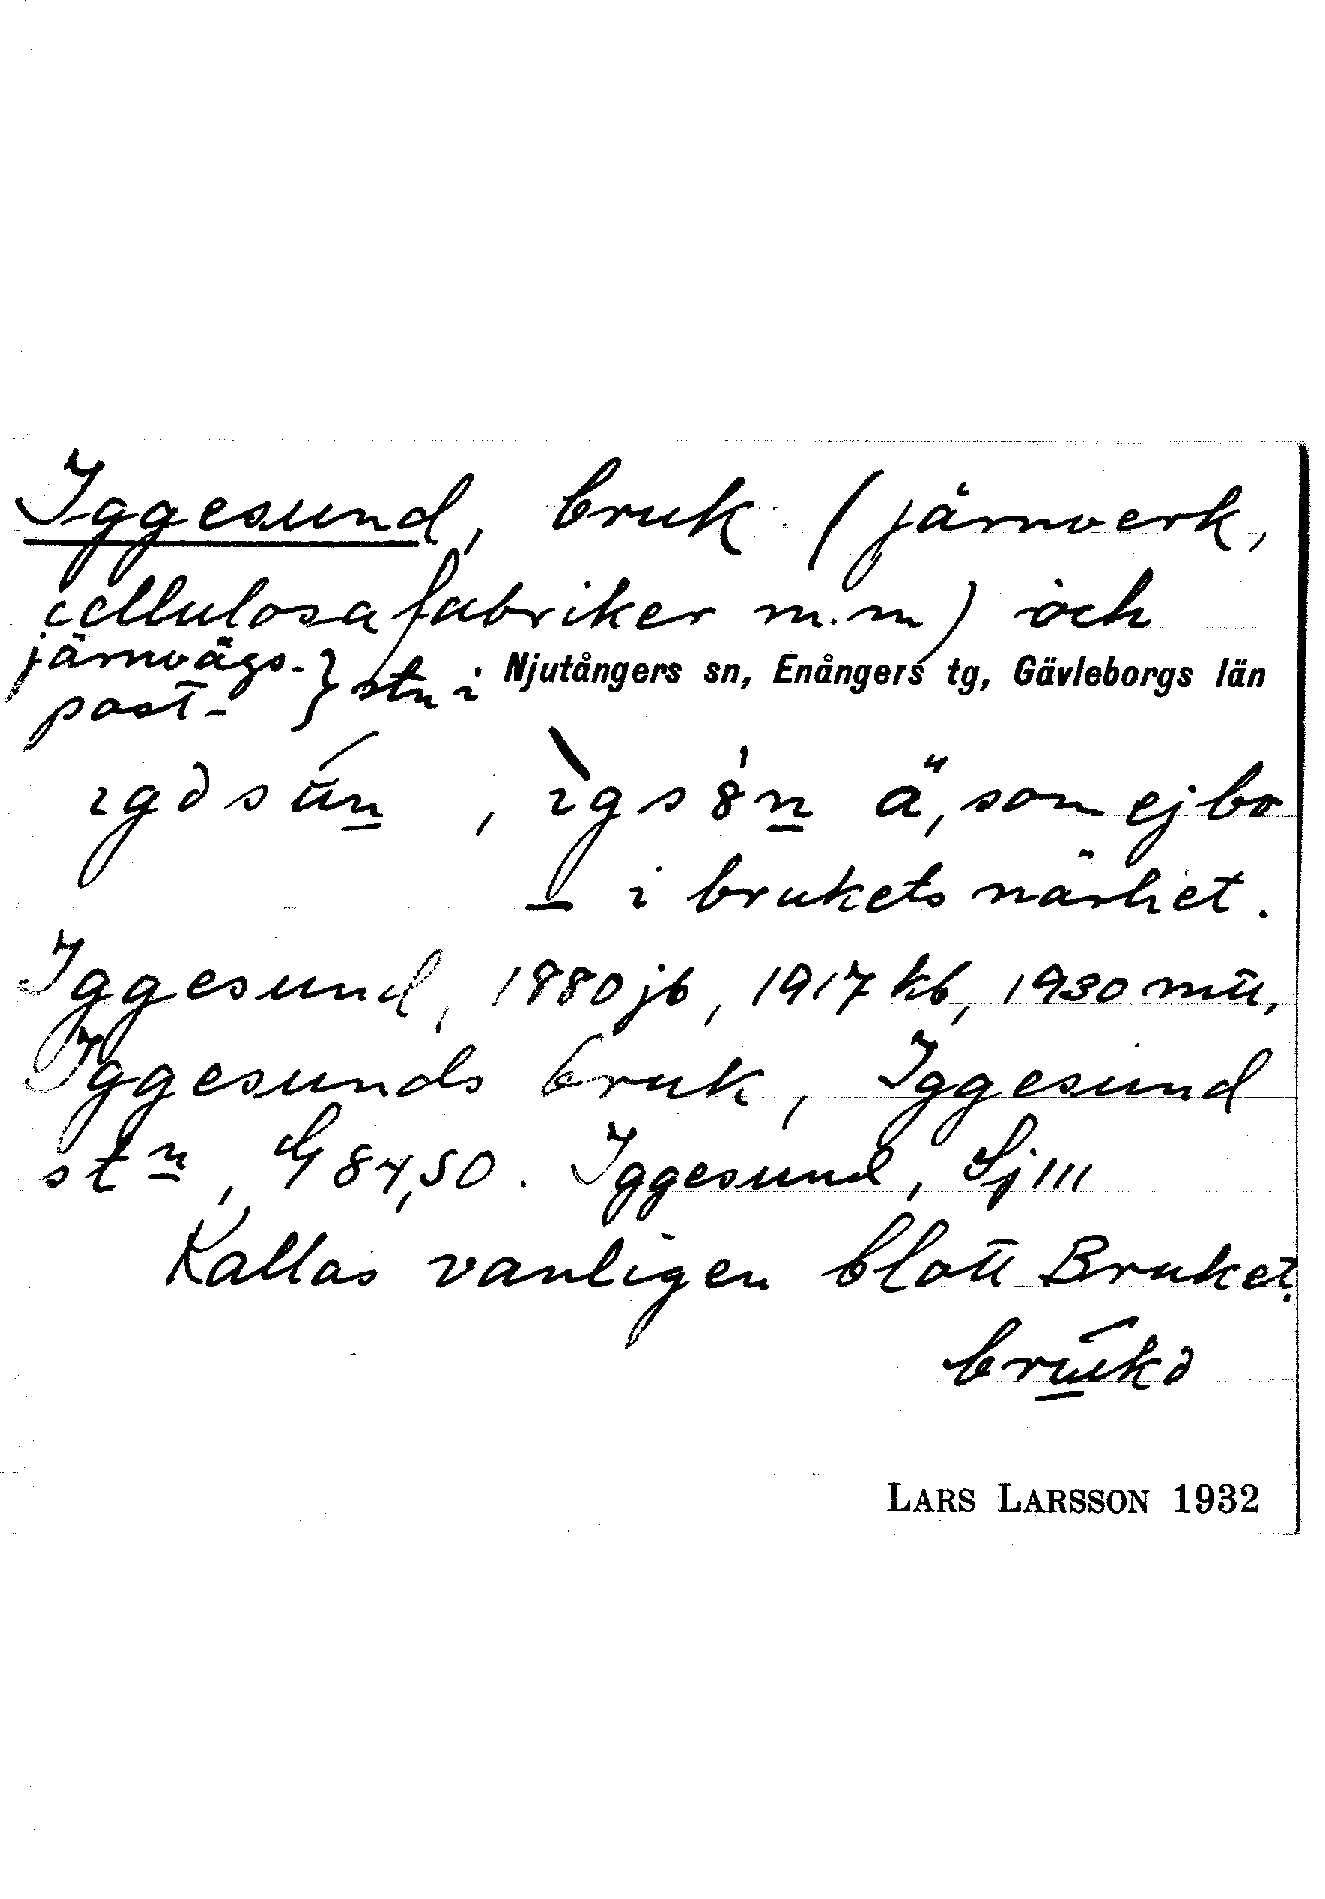 Iggesund, bruk (järnverk,
cellulosafabriker m.m) och
järnvägs- } stn i Njutångers sn, Enångers tg, Gävleborgs län
post-
ıgəsu̅n̲, ıgs8n̲ ä, som ej bo
i brukets närhet.
Iggesund, 1880 jb, 1917 kb, 1930 mtl,
Iggesunds bruk, Iggesund
stn, G 84,50. Iggesund, Sj III
Kallas vanligen blott Bruket.
brukə
LARS LARSSON 1932